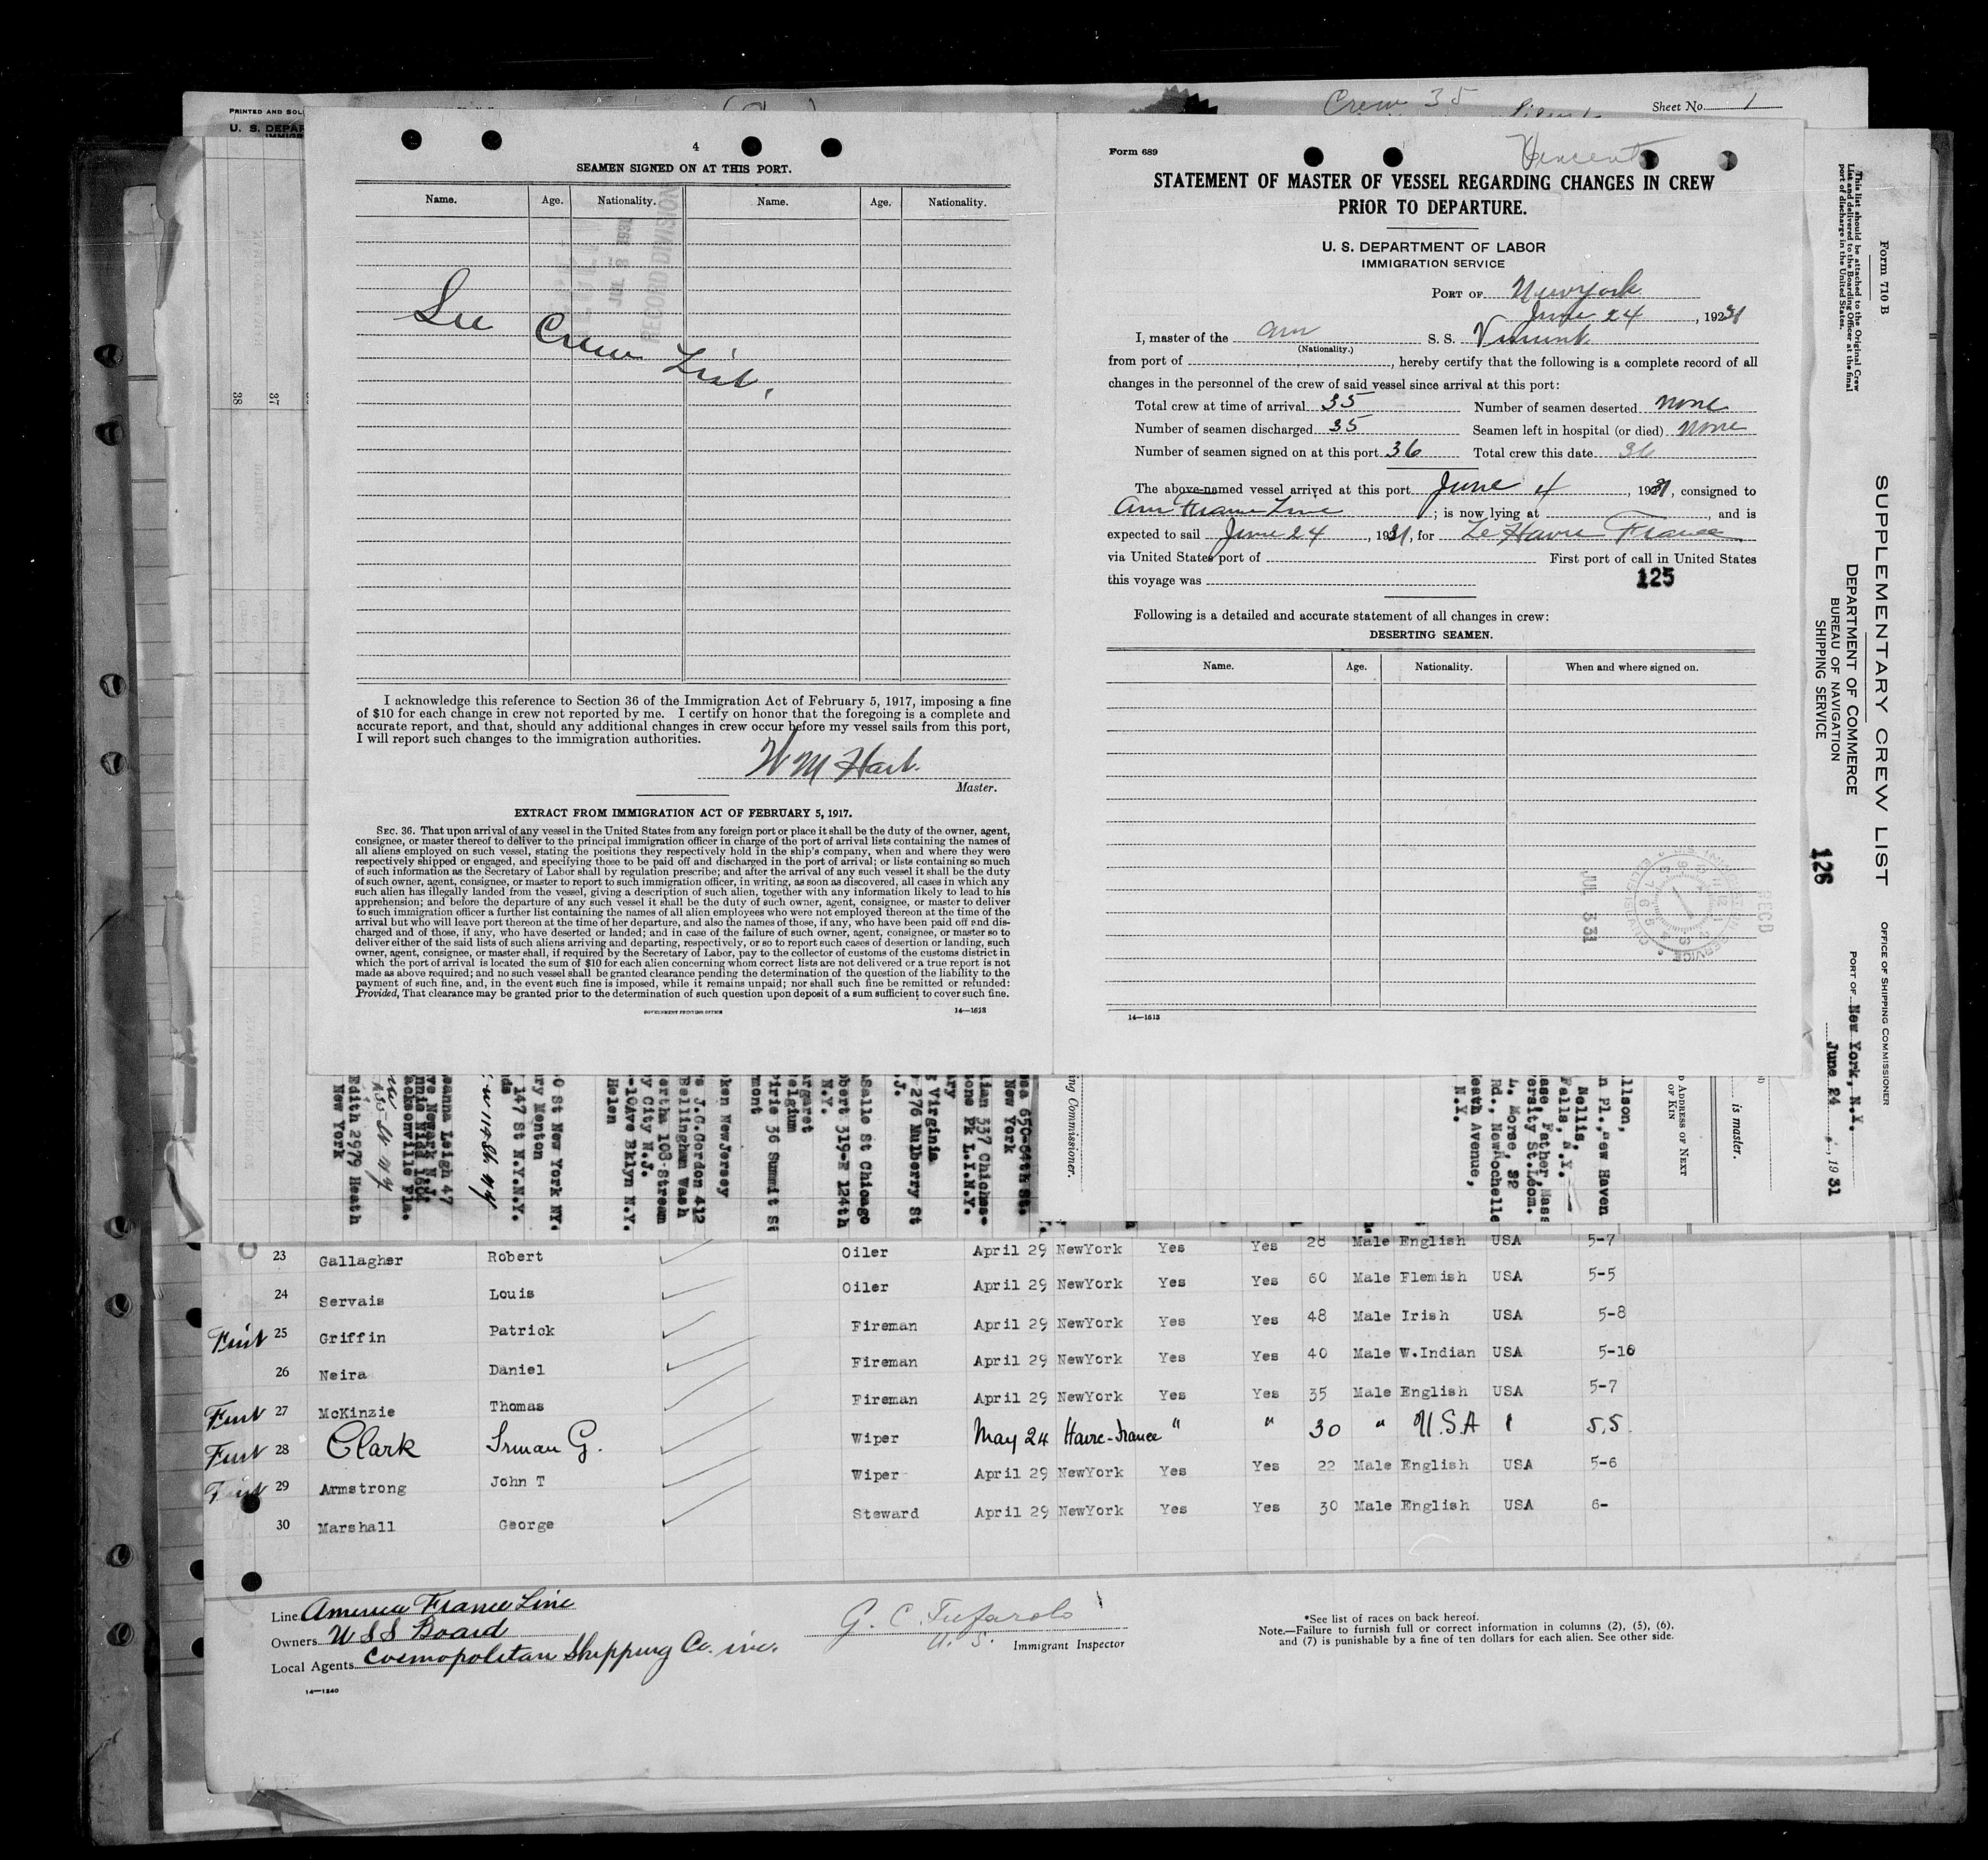 PRINTED AND SOL
U. S. DEPAR
Crew 35
Sheet No. 1
4
SEAMEN SIGNED ON AT THIS PORT.
Name. Age. Nationality. Name. Age. Nationality.
RECORD DIVISION
See Crew List.
I acknowledge this reference to Section 36 of the Immigration Act of February 5, 1917, imposing a fine
of $10 for each change in crew not reported by me. I certify on honor that the foregoing is a complete and
accurate report, and that, should any additional changes in crew occur before my vessel sails from this port,
I will report such changes to the immigration authorities.
W M Hart.
Master.
EXTRACT FROM IMMIGRATION ACT OF FEBRUARY 5, 1917.
SEC. 36. That upon arrival of any vessel in the United States from any foreign port or place it shall be the duty of the owner, agent,
consignee, or master thereof to deliver to the principal immigration officer in charge of the port of arrival lists containing the names of
all aliens employed on such vessel, stating the positions they respectively hold in the ship's company, when and where they were
respectively shipped or engaged, and specifying those to be paid off and discharged in the port of arrival; or lists containing so much
of such information as the Secretary of Labor shall by regulation prescribe; and after the arrival of any such vessel it shall be the duty
of such owner, agent, consignee, or master to report to such immigration officer, in writing, as soon as discovered, all cases in which any
such alien has illegally landed from the vessel, giving a description of such alien, together with any information likely to lead to his
apprehension; and before the departure of any such vessel it shall be the duty of such owner, agent, consignee, or master to deliver
to such immigration officer a further list containing the names of all alien employees who were not employed thereon at the time of the
arrival but who will leave port thereon at the time of her departure, and also the names of those, if any, who have been paid off and dis-
charged and of those, if any, who have deserted or landed; and in case of the failure of such owner, agent, consignee, or master so to
deliver either of the said lists of such aliens arriving and departing, respectively, or so to report such cases of desertion or landing, such
owner, agent, consignee, or master shall, if required by the Secretary of Labor, pay to the collector of customs of the customs district in
which the port of arrival is located the sum of $10 for each alien concerning whom correct lists are not delivered or a true report is not
made as above required; and no such vessel shall be granted clearance pending the determination of the question of the liability to the
payment of such fine, and, in the event such fine is imposed, while it remains unpaid; nor shall such fine be remitted or refunded:
Provided, That clearance may be granted prior to the determination of such question upon deposit of a sum sufficient to cover such fine.
GOVERNMENT PRINTING OFFICE 14—1613
Form 689
Vincent
STATEMENT OF MASTER OF VESSEL REGARDING CHANGES IN CREW
PRIOR TO DEPARTURE.
U. S. DEPARTMENT OF LABOR
IMMIGRATION SERVICE
PORT OF New York
June 24, 1931
I, master of the Am S. S. Vincent
(Nationality.)
from port of , hereby certify that the following is a complete record of all
changes in the personnel of the crew of said vessel since arrival at this port:
Total crew at time of arrival 35 Number of seamen deserted none
Number of seamen discharged 35 Seamen left in hospital (or died) none
Number of seamen signed on at this port 36 Total crew this date 36
The above-named vessel arrived at this port June 4, 1931, consigned to
Am France Line ; is now lying at , and is
expected to sail June 24, 1931, for Le Havre France
via United States port of First port of call in United States
this voyage was 125
Following is a detailed and accurate statement of all changes in crew:
DESERTING SEAMEN.
Name. Age. Nationality. When and where signed on.
JUL 3 31
RECD
14—1613
This list should be attached to the Original Crew
List and delivered to the Boarding Officer at the final
port of discharge in the United States.
Form 710 B
SUPPLEMENTARY CREW LIST
DEPARTMENT OF COMMERCE
BUREAU OF NAVIGATION
SHIPPING SERVICE
126
OFFICE OF SHIPPING COMMISSIONER
PORT OF New York, N.Y.
June 24, 1931
is master.
D ADDRESS OF NEXT
OF KIN
llison,
n Pl., New Haven
Nellis,
Falls, N.Y.
ase, Father, Mass
versity St. Leom.
L. Morse, 32
Rd., NewRochelle
Heath Avenue,
N.Y.
ing Commissioner.
sea 650-64th St.
New York
lian 337 Chiches-
one Pk L.I.N.Y.
ary
Virginia
276 Mulberry St
.J.
aSalle St Chicago
bert 319-E 124th
N.Y.
argaret
elgium
irie 36 Summit St
mont
ken NewJersey
s J.G.Gordon 412
Bellingham Wash
ertha 108-Stream
y City N.J.
-10Ave Bklyn N.Y.
Helen
O St New York NY.
ry Menton
147 St N.Y.N.Y.
ds
eanna Leigh 47
ve Newark N.J.
nnie Nid 1604
acksonville Fla.
Edith 2979 Heath
New York
38 37
23 Gallagher Robert Oiler April 29 NewYork Yes Yes 28 Male English USA 5-7
24 Servais Louis Oiler April 29 NewYork Yes Yes 60 Male Flemish USA 5-5
First 25 Griffin Patrick Fireman April 29 NewYork Yes Yes 48 Male Irish USA 5-8
26 Neira Daniel Fireman April 29 NewYork Yes Yes 40 Male W.Indian USA 5-10
First 27 McKinzie Thomas Fireman April 29 NewYork Yes Yes 35 Male English USA 5-7
First 28 Clark Irman G. Wiper May 24 Havre-France " " 30 " U.S.A 5.5.
First 29 Armstrong John T Wiper April 29 NewYork Yes Yes 22 Male English USA 5-6
30 Marshall George Steward April 29 NewYork Yes Yes 30 Male English USA 6-
Line America France Line
Owners U S S Board
Local Agents Cosmopolitan Shipping Co. inc.
14—1240
G. C. Tufarolo
U. S. Immigrant Inspector
*See list of races on back hereof.
Note.—Failure to furnish full or correct information in columns (2), (5), (6),
and (7) is punishable by a fine of ten dollars for each alien. See other side.